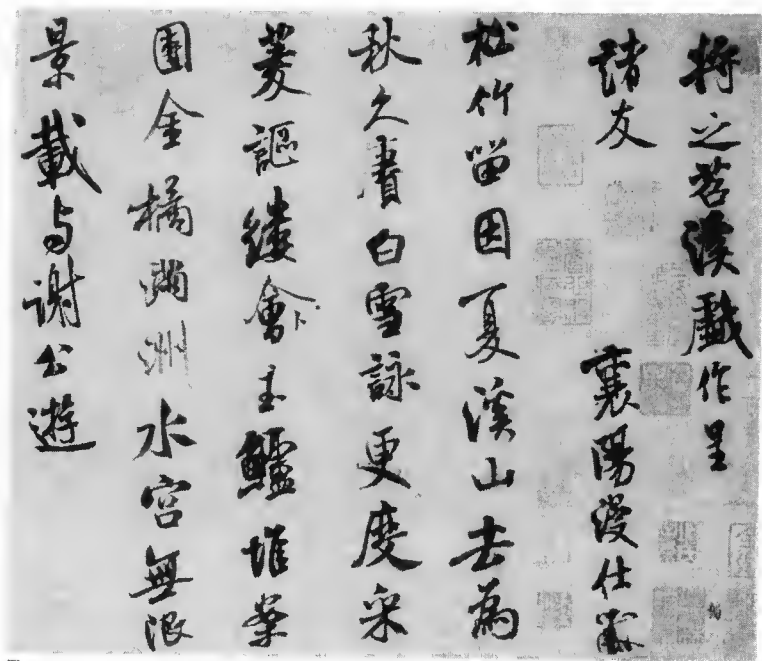 將之苕溪戯作呈
諸友 襄陽漫仕黻
松竹留因夏溪山去為
秋久賡白雪詠更度采
菱謳縷會玉鱸堆案
團金橘滿洲水宮無限
景載与謝公遊